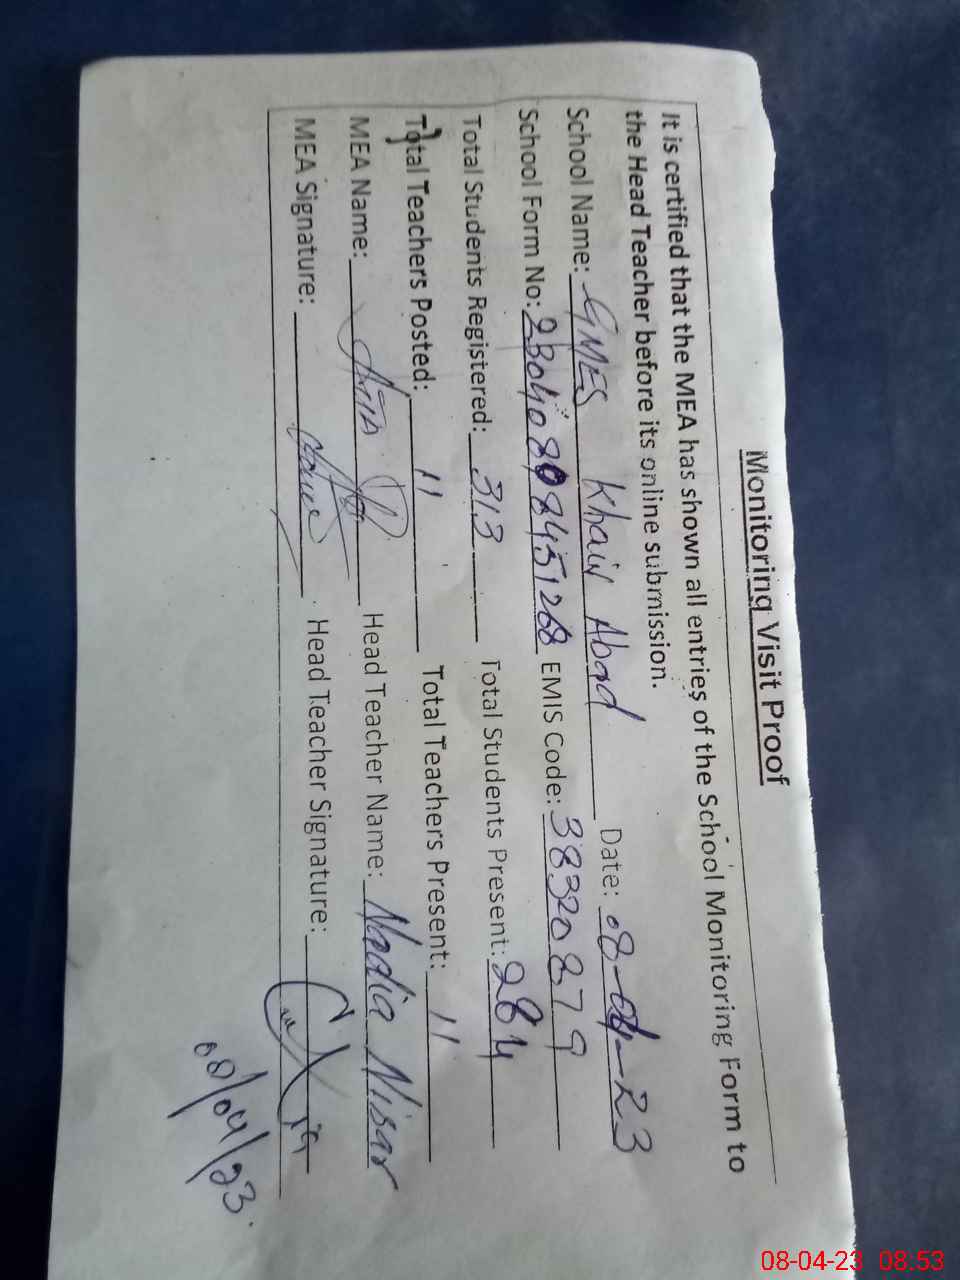 Monitoring Visit Proof
It is certified that the MEA has shown all entries of the School Monitoring Form to
the Head Teacher before its online submission.
School Name: GMES Khair Abad Date: 08-04-23
School Form No: EMIS Code: 38320879
Total Students Registered: 313 Total Students Present: 284
Total Teachers Posted: 11 Total Teachers Present: 11
MEA Name: Head Teacher Name: Nadia Nisar
MEA Signature: Head Teacher Signature:
08/04/23.
08-04-23 08:53